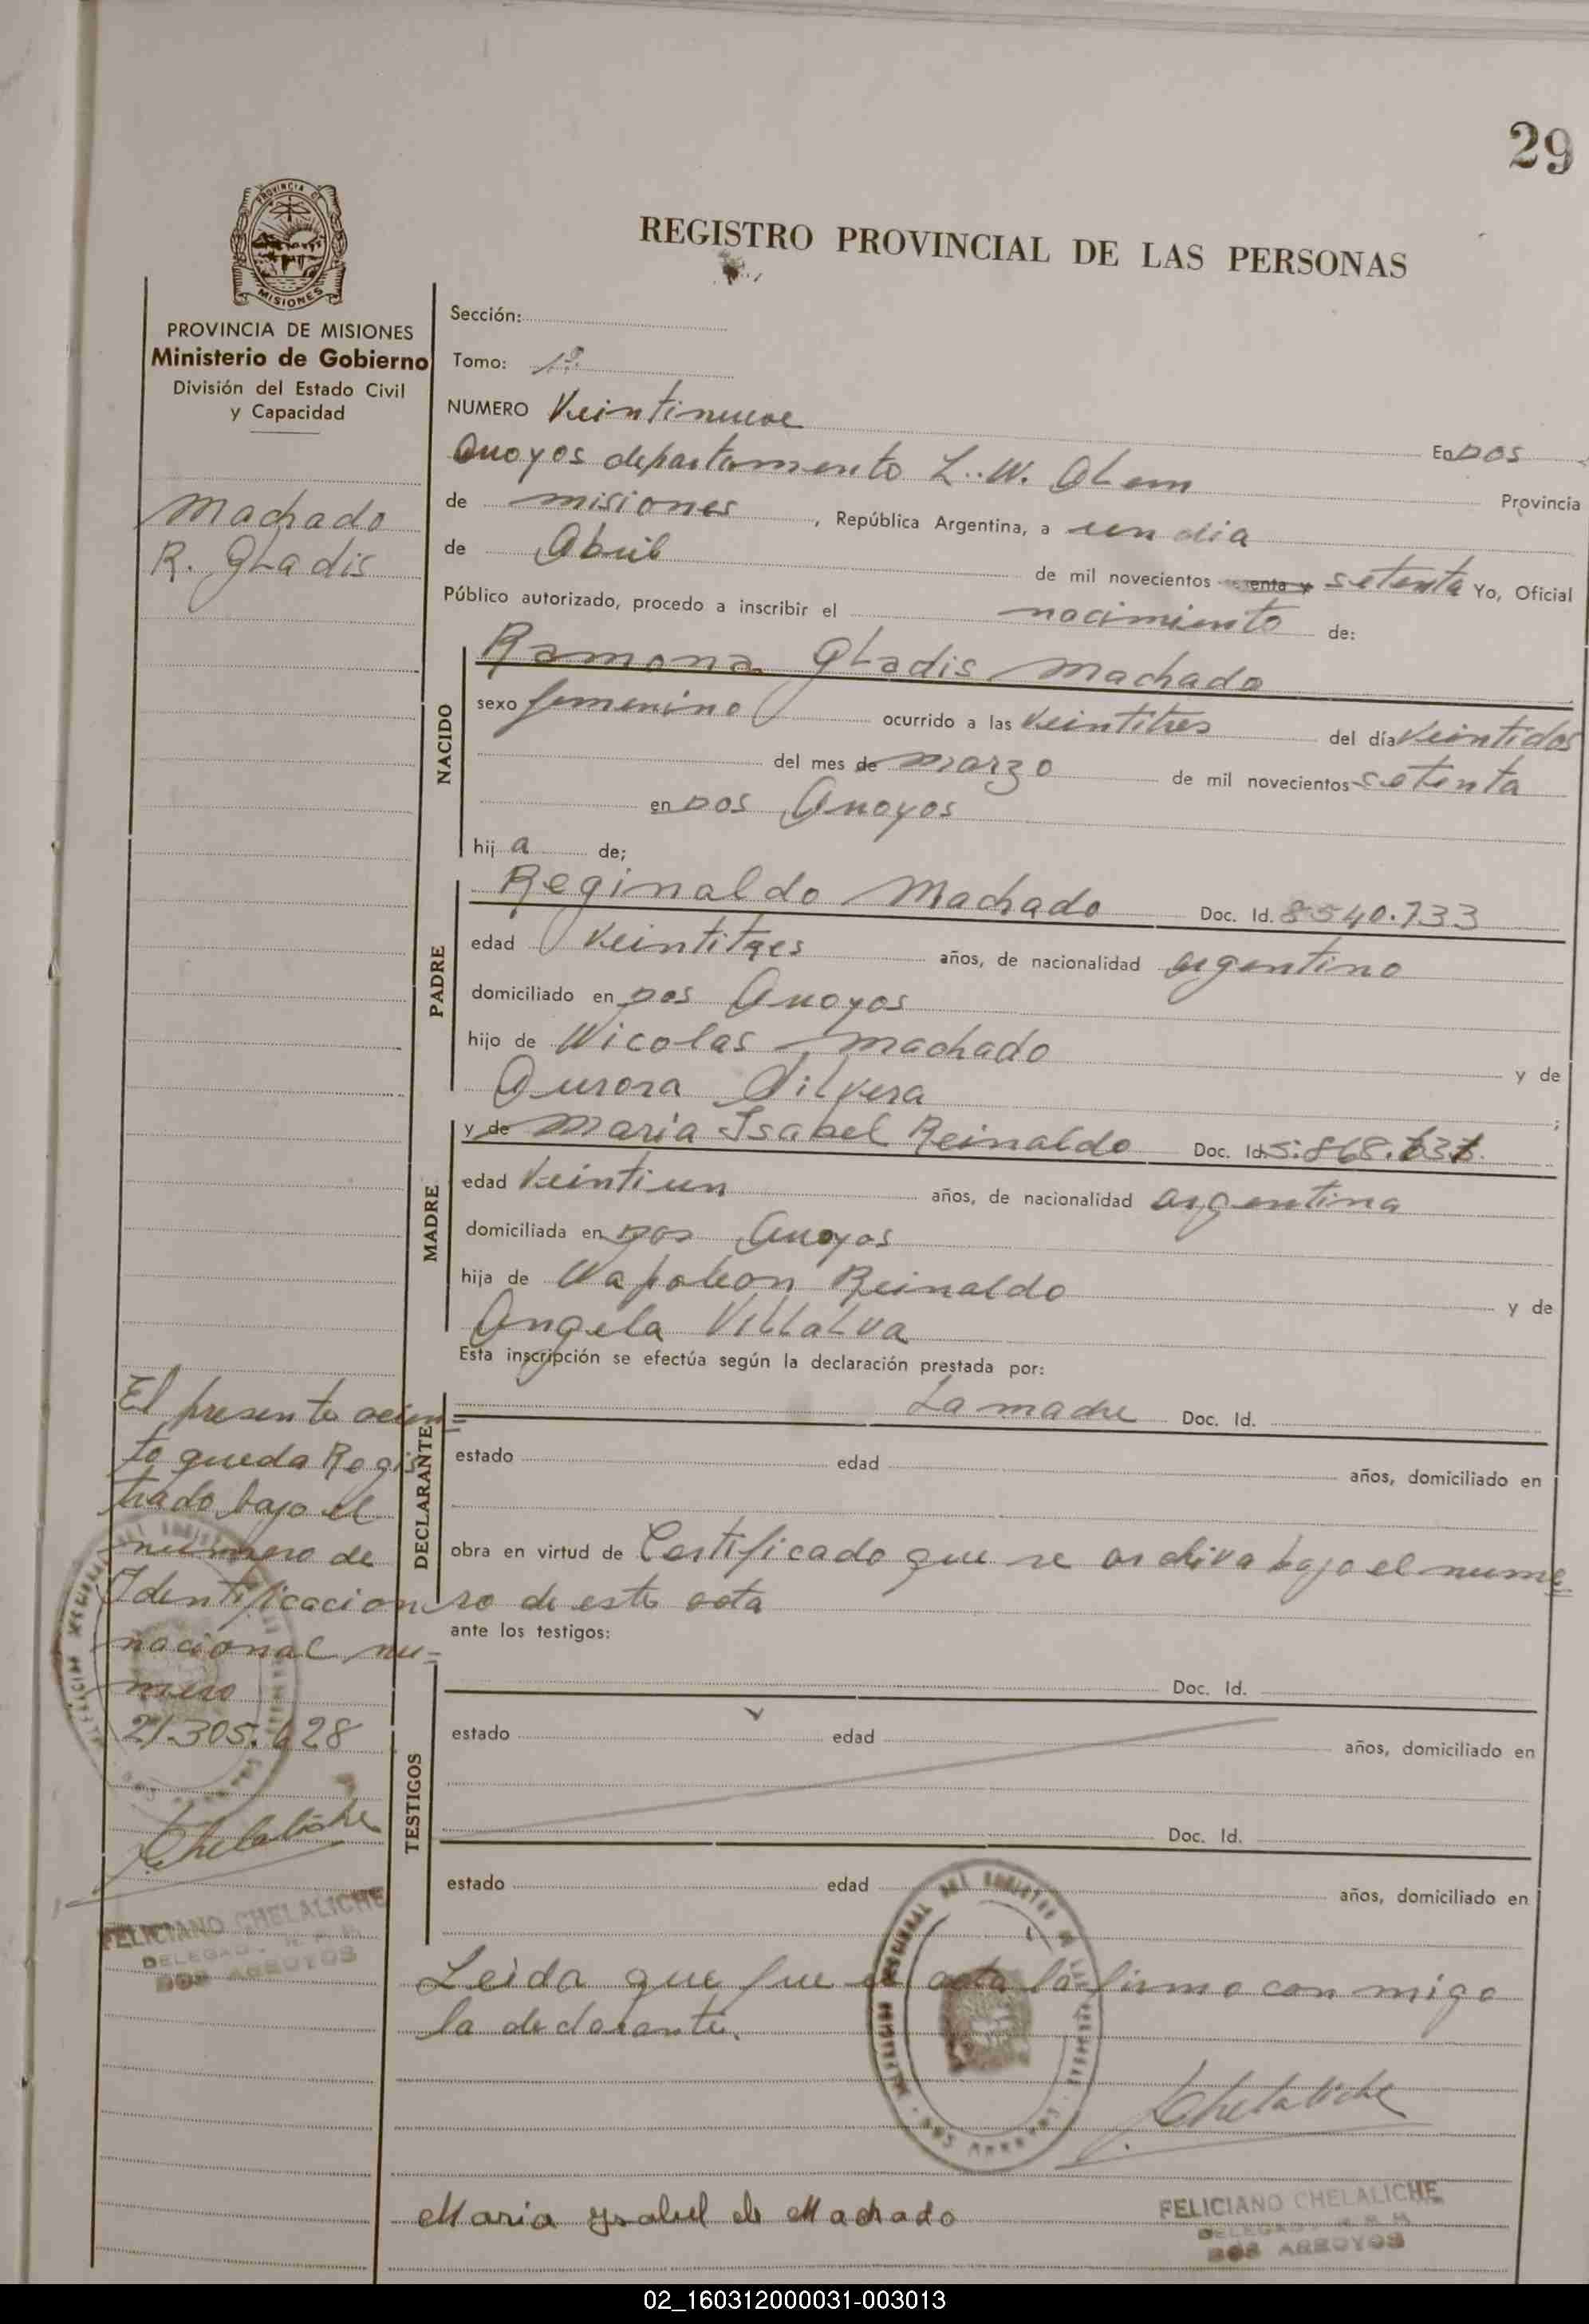 29
REGISTRO PROVINCIAL DE LAS PERSONAS
PROVINCIA DE MISIONES
Ministerio de Gobierno
División del Estado Civil
y Capacidad
Machado
R. Gladis
Sección:
Tomo: 1º
NUMERO Veintinueve
En Dos
Arroyos departamento L. N. Alem
Provincia
de misiones, República Argentina, a un dia
de Abril de mil novecientos setenta Yo, Oficial
Público autorizado, procedo a inscribir el nacimiento de:
NACIDO
Ramona Gladis Machado
sexo femenino ocurrido a las Veintitres del día Veintidos
del mes de marzo de mil novecientos setenta
en Dos Arroyos
hij a de;
PADRE
Reginaldo Machado Doc. Id. 8540.733
edad Veintitres años, de nacionalidad argentino
domiciliado en Dos Arroyos
hijo de Nicolas Machado y de
Aurora Silvera ;
MADRE
y de Maria Isabel Reinaldo Doc. Id. 5.868.
edad Veintiun años, de nacionalidad argentina
domiciliada en Dos Arroyos
hija de Napoleon Reinaldo y de
Angela Villalva
Esta inscripción se efectúa según la declaración prestada por:
DECLARANTE
La madre Doc. Id.
estado edad años, domiciliado en
obra en virtud de Certificado que se archiva bajo el nume
ro de este acta
ante los testigos:
TESTIGOS
Doc. Id.
estado edad años, domiciliado en
Doc. Id.
estado edad años, domiciliado en
El presente
to queda Regis
trado bajo el
numero de
Identificacion
nacional nu=
mero
21.305.628
Chelaliche
FELICIANO CHELALICHE
DOS ARROYOS
Leida que fue el acta la firma con migo
la declarante.
Chelaliche
Maria Ysabel de Machado
FELICIANO CHELALICHE
DOS ARROYOS
02_160312000031-003013